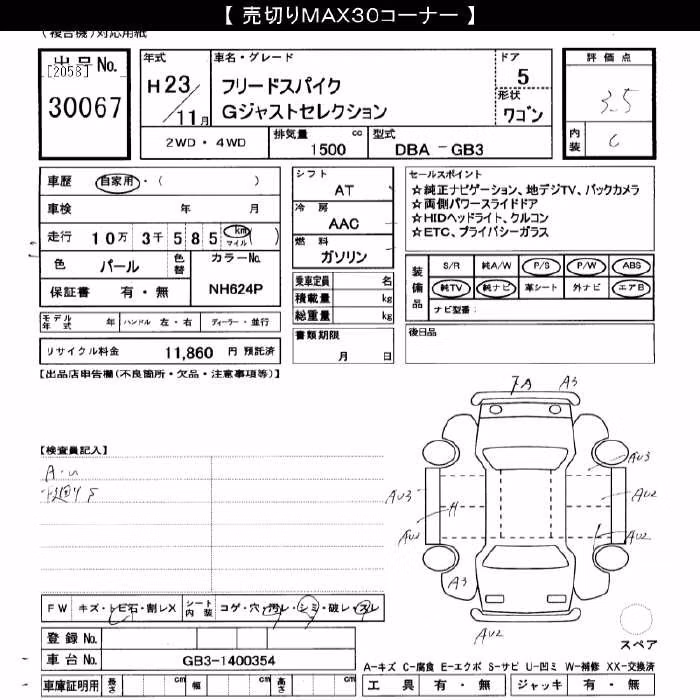 【 売切りMAX30コーナー 】
(複合機)対応用紙
出品No.
[2058]
30067
年式
H 23/11月
車名・グレード
フリードスパイク
Gジャストセレクション
ドア
5
形状
ワゴン
評価点
3.5
内装
C
2WD・4WD
排気量 cc
1500
型式
DBA －GB3
車歴 自家用・( )
車検 年 月
走行 10万 3千 585 km マイル ( )
色 パール 色替
カラーNo.
NH624P
保証書 有・無
モデル年式 年 ハンドル 左・右 ディーラー・並行
リサイクル料金 11,860 円 預託済
シフト
AT
冷房
AAC
燃料
ガソリン
乗車定員 名
積載量 kg
総重量 kg
書類期限
月 日
セールスポイント
☆純正ナビゲーション、地デジTV、バックカメラ
☆両側パワースライドドア
☆HIDヘッドライト、クルコン
☆ETC、プライバシーガラス
装備品
S/R 純A/W P/S P/W ABS
純TV 純ナビ 革シート 外ナビ エアB
ナビ型番:
後日品
【出品店申告欄(不良箇所・欠品・注意事項等)】
【検査員記入】
A・u
7A A3
AU3
AU3 AU2
A
AU2 AU2
A3
AU2
FW キズ・トビ石・割レX シート内装 コゲ・穴・汚レ・シミ・破レ・スレ
登録No.
車台No. GB3-1400354
車庫証明用 長さ cm 幅 cm 高さ cm
スペア
A-キズ C-腐食 E-エクボ S-サビ U-凹ミ W-補修 XX-交換済
工具 有・無 ジャッキ 有・無